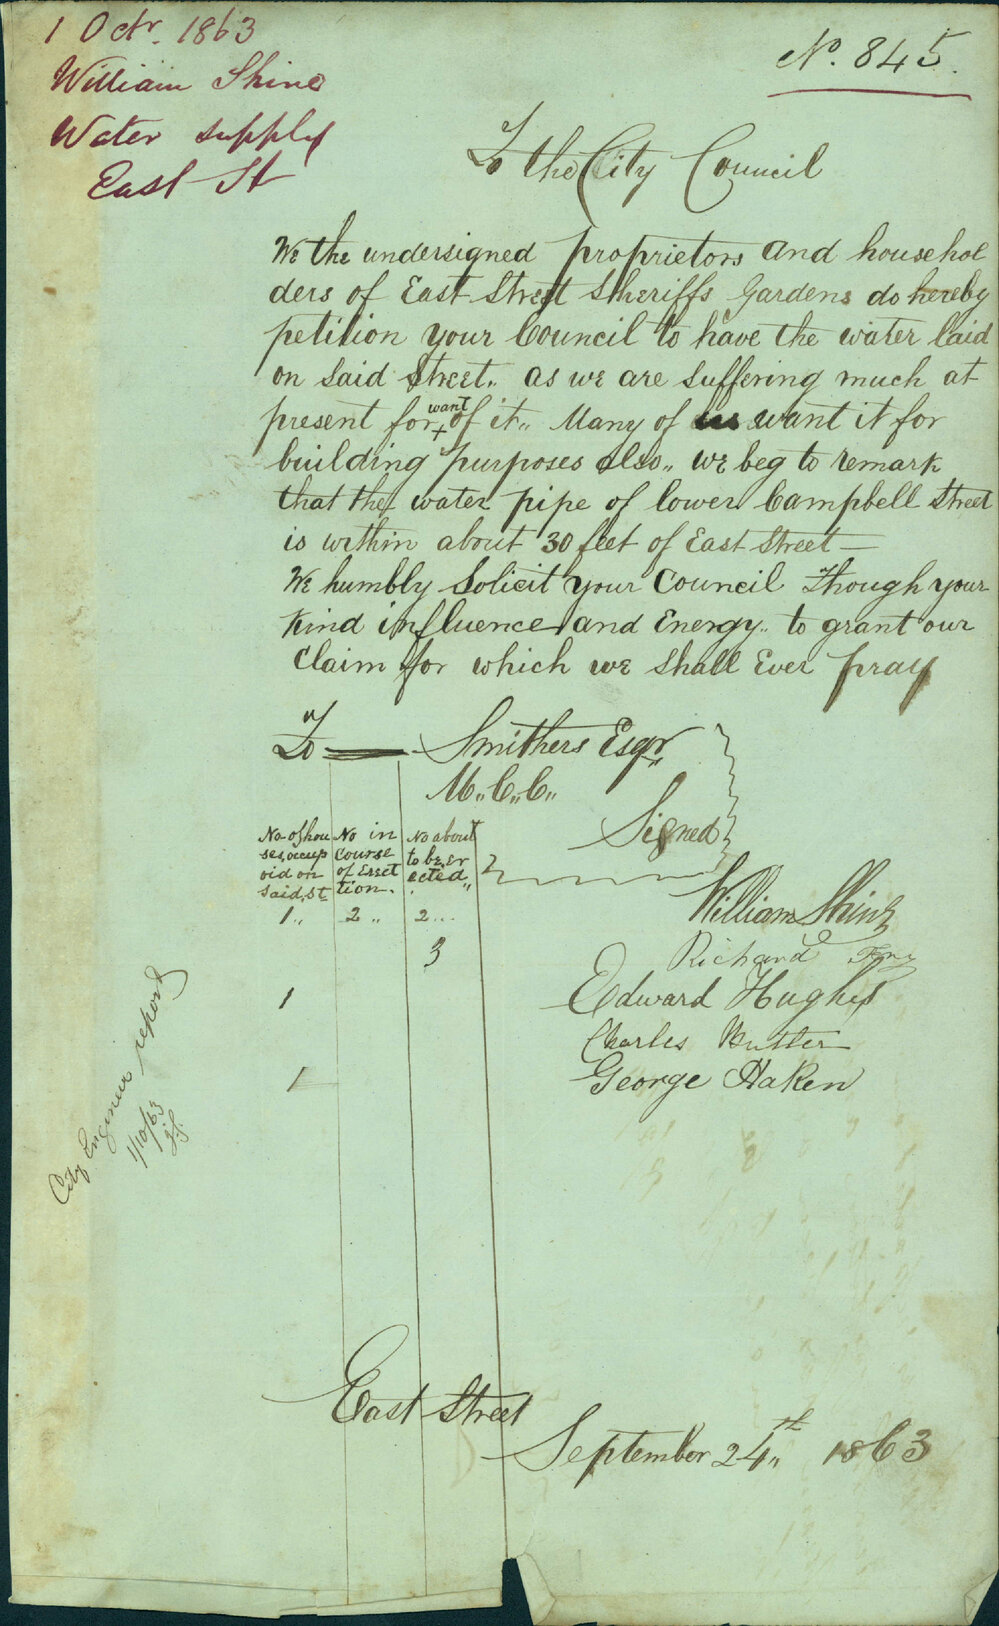 1 Octr. 1863
William Shine
Water supply
East St
No. 845
To the City Council
We the undersigned proprietors and househol
ders of East Street Sheriffs Gardens do hereby
petition your Council to have the water laid
on said Street,, as we are suffering much at
present for want of it,, Many of us want it for
building purposes also,, we beg to remark
that the water pipe of lower Campbell Street
is within about 30 feet of East Street —
We humbly Solicit your Council though your
kind influence and Energy,, to grant our
Claim for which we shall Ever pray
To — Smithers Esqr,,
M,,C,,C,,
Signed
No of hou
ses,occup
oid on
said,,St
No in
course
of Erect
tion.
No about
to be,Er
ected,,
1,, 2,, 2...
William Shine
3 Richard
1 Edward Hughes
Charles Butler
1 George Haken
City Engineer report
1/10/63
East Street
September 24th,, 1863